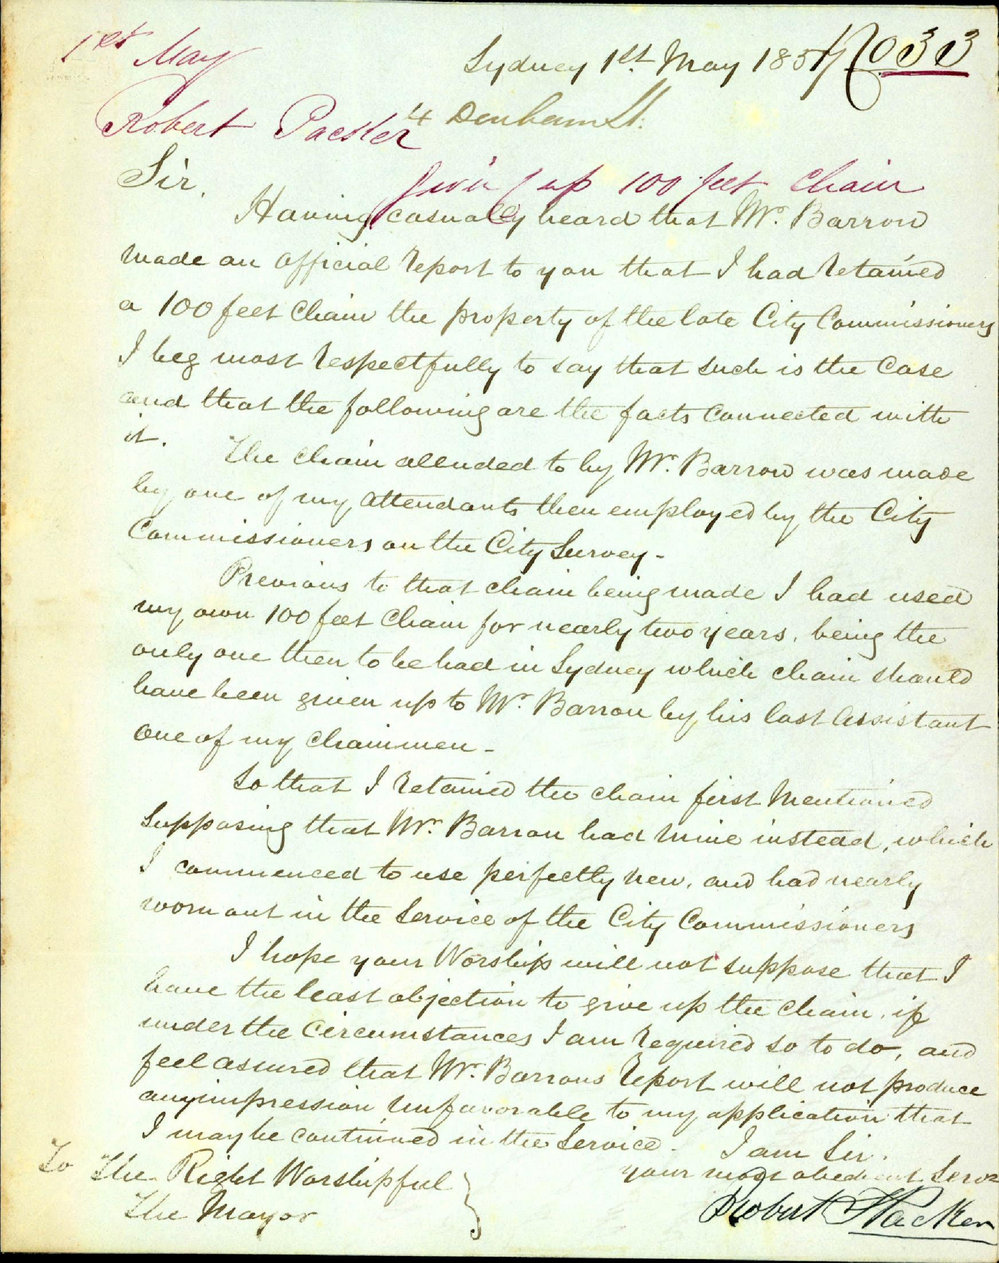 1st May
Sydney 1st May 1857 No 33
4 Denham St.
Robert Packer
giving up 100 feet chain
Sir.
Having casually heard that Mr. Barrow
made an official report to you that I had retained
a 100 feet chain the property of the late City Commissioners
I beg most respectfully to say that such is the case
and that the following are the facts connected with
it. The chain alluded to by Mr. Barrow was made
by one of my attendants then employed by the City
Commissioners on the City Survey -
Previous to that chain being made I had used
my own 100 feet chain for nearly two years, being the
only one then to be had in Sydney which chain should
have been given up to Mr. Barrow by his last assistant
one of my chainmen -
So that I retained the chain first mentioned
supposing that Mr. Barrow had mine instead, which
I commenced to use perfectly new, and had nearly
worn out in the service of the City Commissioners
I hope your Worship will not suppose that I
have the least objection to give up the chain, if
under the circumstances I am required so to do, and
feel assured that Mr. Barrows report will not produce
any impression unfavorable to my application that
I may be continued in the service. I am Sir.
your most obedient Serv
Robert Packer
To The Right Worshipful
The Mayor